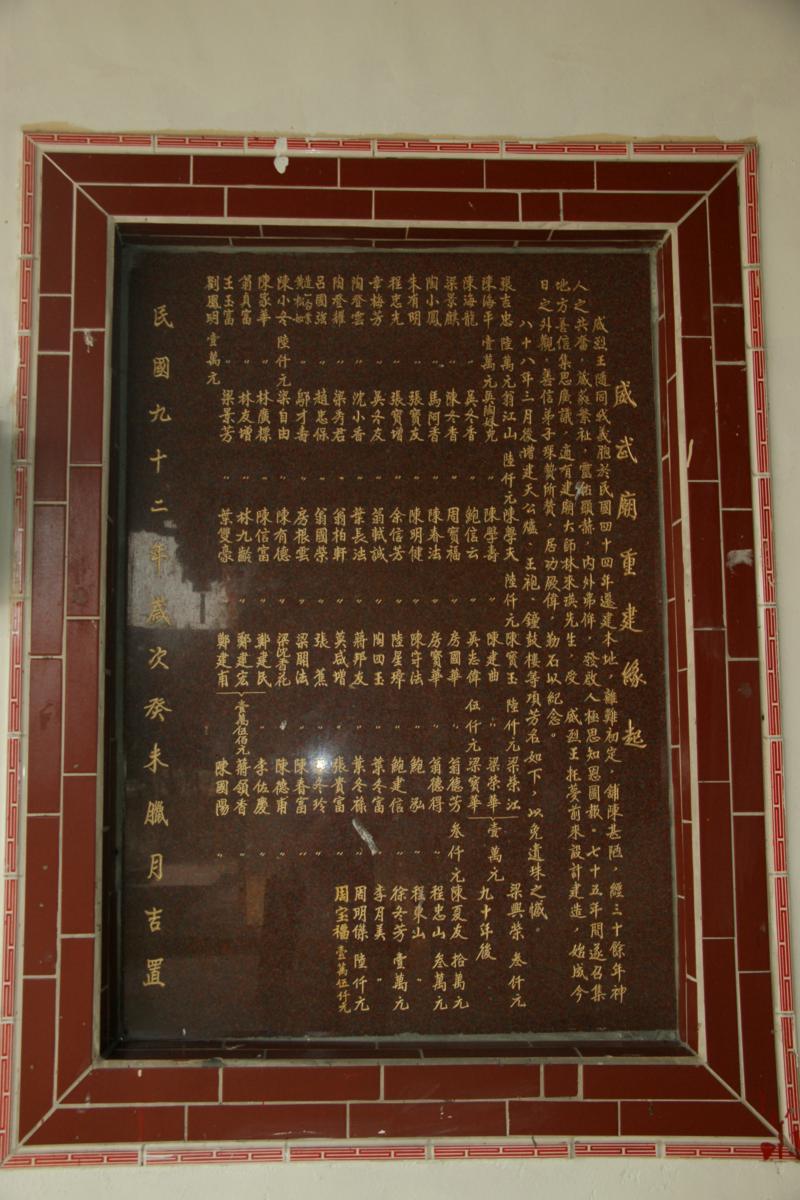 威武廟重建緣起
威烈王隨同我義胞於民國四十四年遷建本址，離難初定，鋪陳甚陋，經三十餘年神
人之共奮，威蒸繁祉，靈佑顯赫，內外弗侔，發啟人極思知恩圖報。七十五年間遂召集
地方善信集思廣議，適有建廟大師林來琪先生，受 威烈王托夢前來設計建造，始成今
日之外觀，善信弟子琛贊所贊，居功厥偉，勒石以紀念。
八十八年三月後增建天公爐、王袍、鐘鼓樓等項芳名如下，以免遺珠之憾。
張吉忠 陸萬元 翁江山 陸仟元 陳學天 陸仟元 陳寶玉 陸仟元 梁榮江 梁興榮 叁仟元
陳海平 壹萬元 陳學壽 〃 陳建曲 〃 梁榮華 壹萬元 九十年後
陳海龍 〃 吳冬香 〃 鮑信云 〃 吳志偉 伍仟元 梁寶華
梁景麒 〃 陳冬香 〃 周賀福 〃 房國華 〃 翁德芳 叁仟元 陳夏友 拾萬元
陶小鳳 〃 馬阿香 〃 陳春法 〃 房寶華 〃 翁德得 〃 程忠山 叁萬元
朱有明 〃 張寶友 〃 陳明健 〃 陳守法 〃 鮑泓 〃 程東山 〃
程忠光 〃 張寶增 〃 余信芳 〃 陸星璋 〃 鮑建信 〃 徐冬芳 壹萬元
章梅芳 〃 吳冬友 〃 翁軾誠 〃 陶四玉 〃 葉冬富 〃 李月美 〃
陶登雲 〃 沈小香 〃 葉長法 〃 蔣邦友 〃 葉冬蓀 〃 周明傑 陸仟元
陶登耀 〃 梁秀君 〃 翁柏軒 〃 莫咸增 〃 張貴富 〃 周宝福 壹萬伍仟元
呂國強 〃 趙忠保 〃 翁國榮 〃 張蕉 〃 冬玲 〃
鄔才壽 〃 房根雲 〃 梁開法 〃 陳春富 〃
陳小冬 陸仟元 梁自由 〃 陳有德 〃 梁沈秀花 〃 陳德甫 〃
陳家華 〃 林廣標 〃 陳信富 〃 鄭建民 〃 李佐慶 〃
翁貞富 〃 林友增 〃 林九齡 〃 鄭建宏 壹萬伍佰元 蔣領香 〃
王玉富 〃 梁景芳 〃 葉雙豪 〃 鄭建甫 陳國陽 〃
劉鳳明 壹萬元
民國九十二年歲次癸未臘月吉置